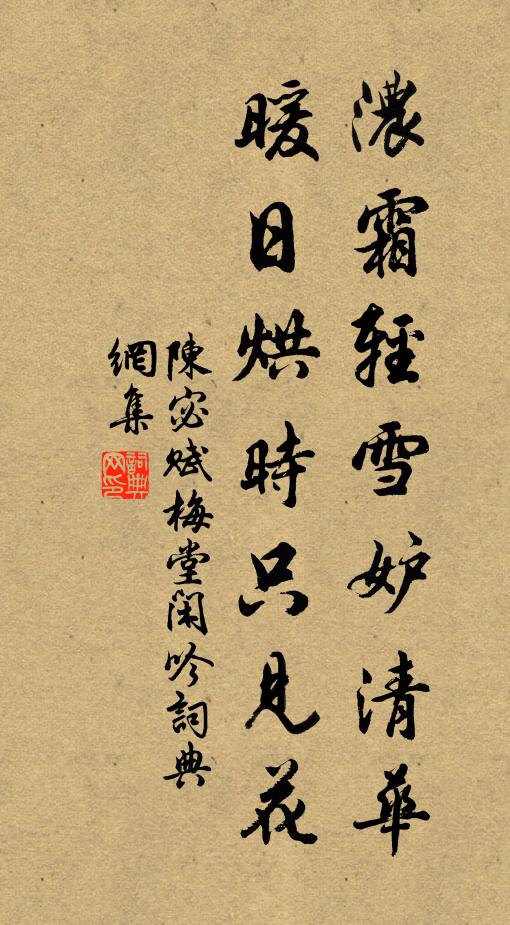 濃霜輕雪妒清華
暖日烘時只見花
陳宓賦梅堂閑吟詞典
網集
詞典
网印